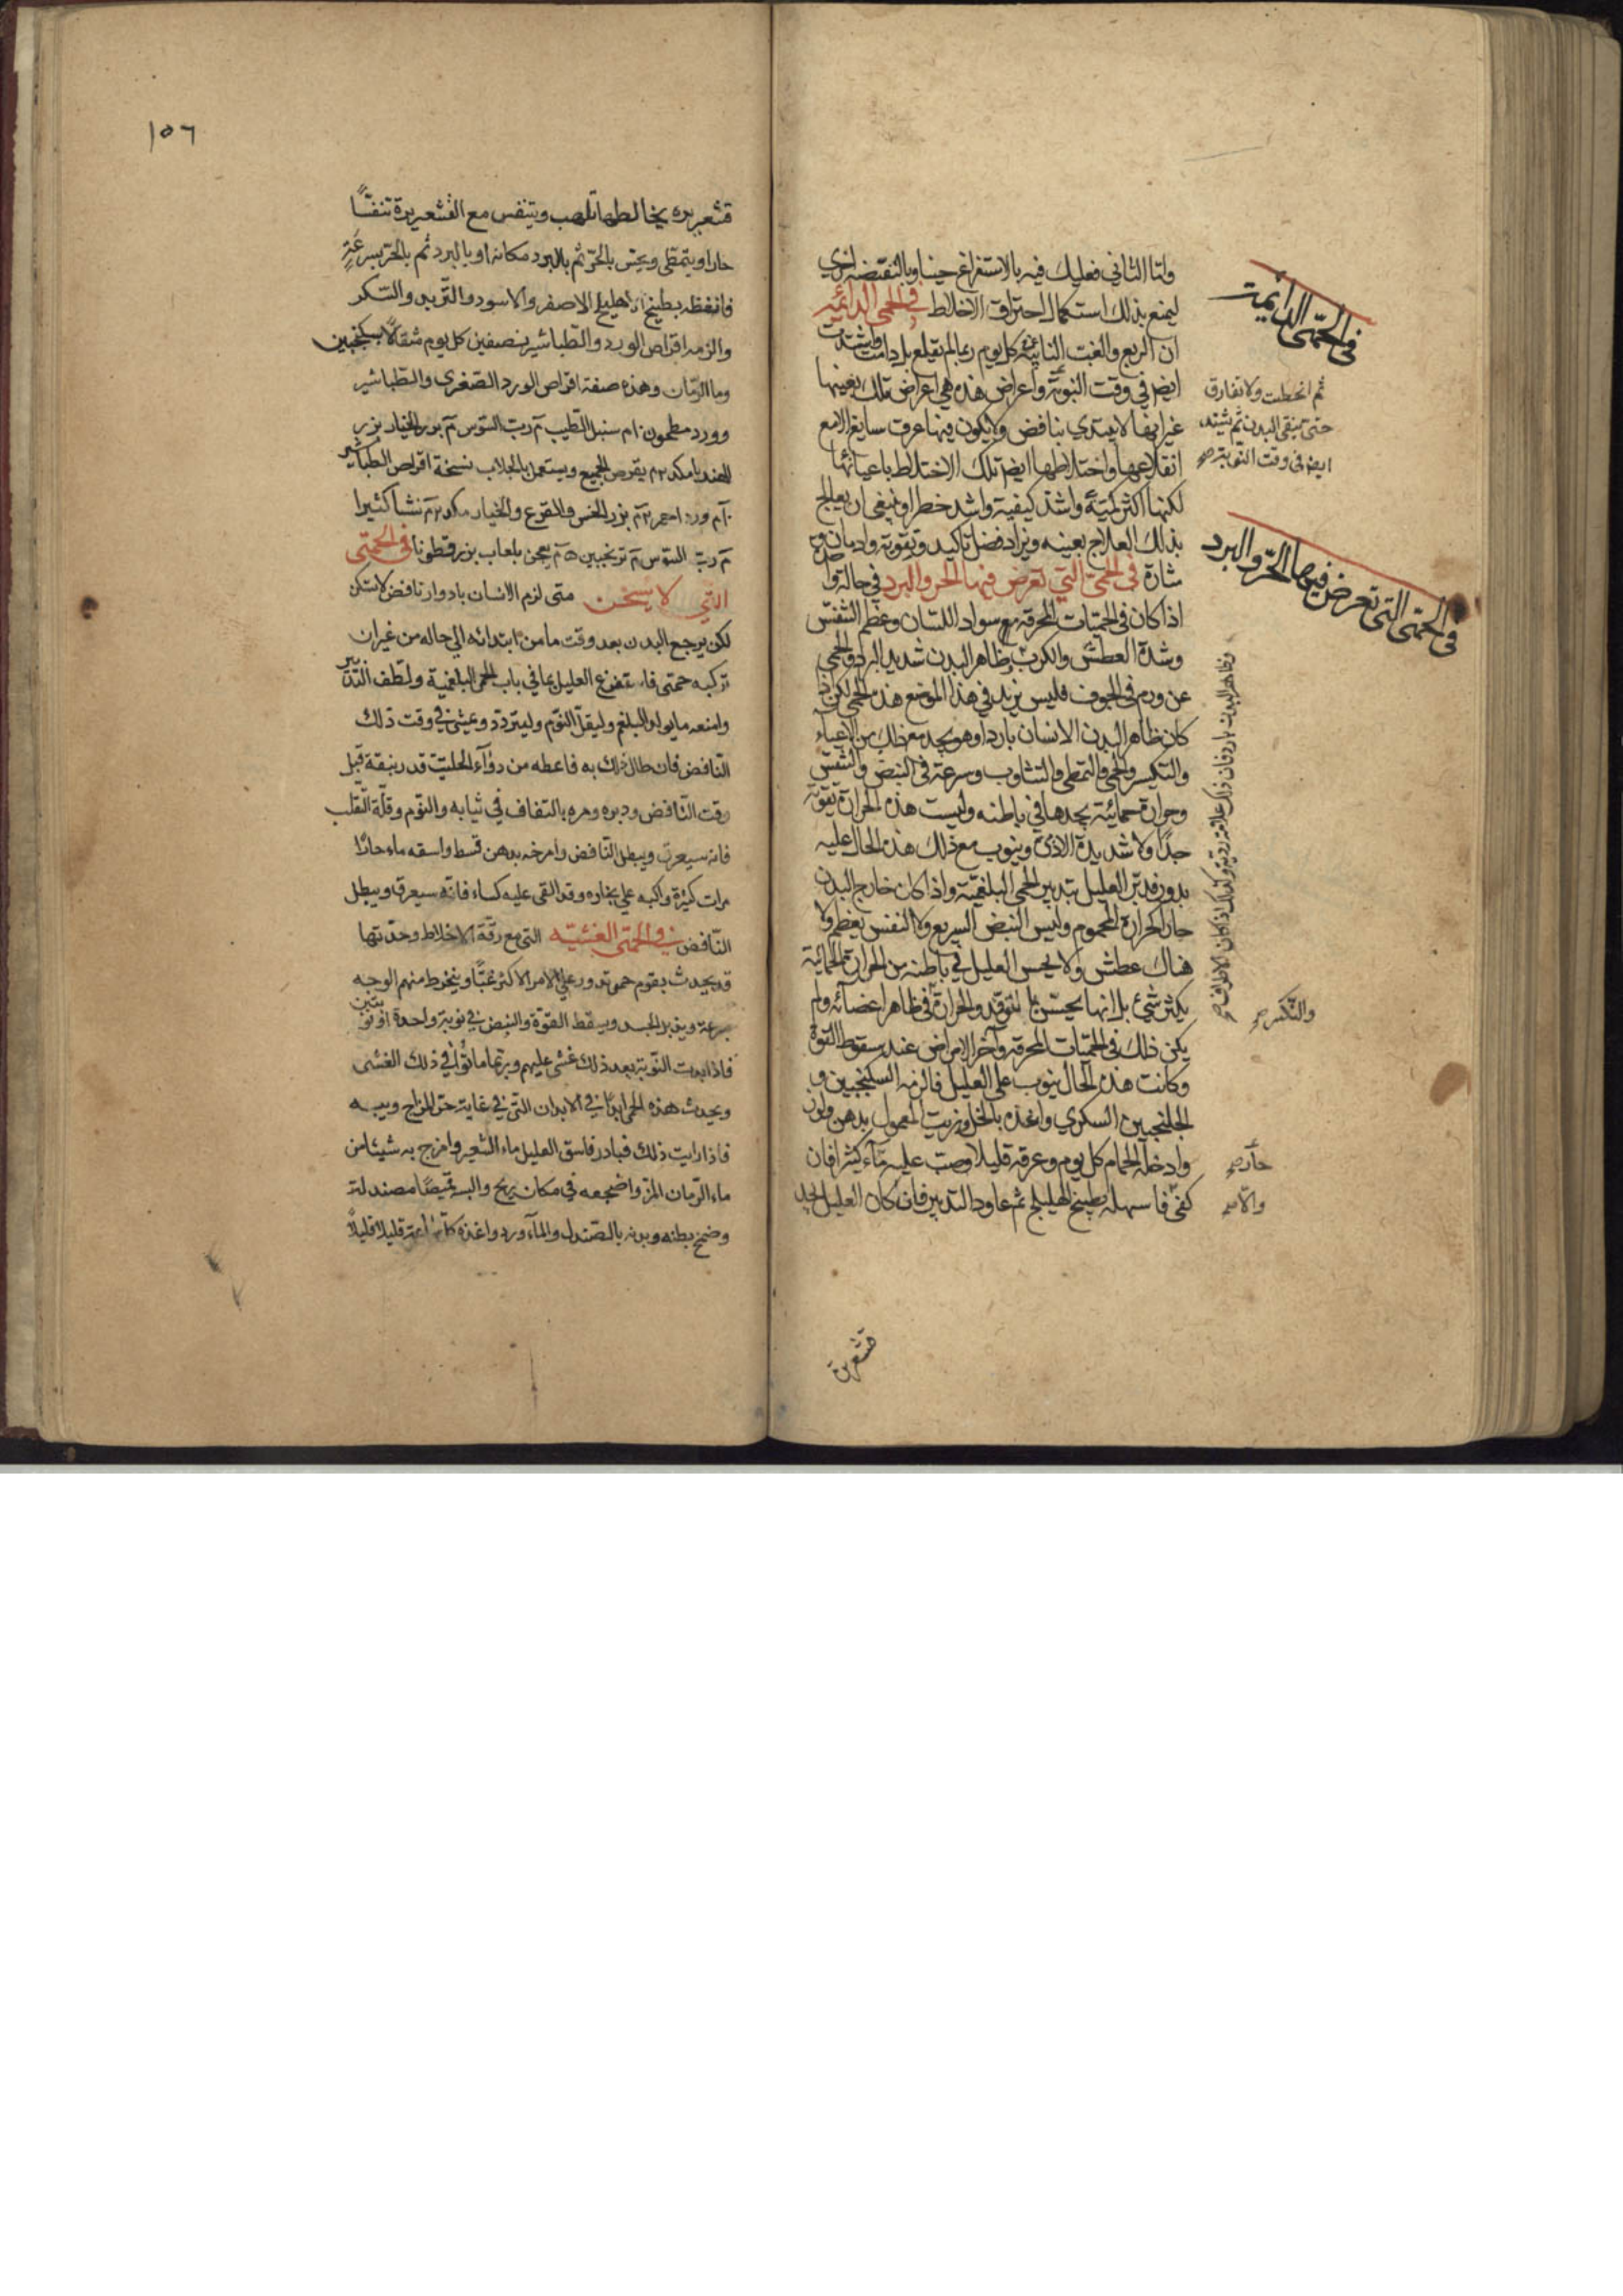 في الحمّى الدائمة
واما الثاني فعليك فيه بالاستفراغ حينا وبالنقيضة اخرى
ليمنع بذلك استكمال احتراق الاخلاط في الحمى الدائمة
ان الربع والغب النائبة كل يوم ربما لم يقلع بل دامت واشتدت
ايضا في وقت النوبة واعراض هذه هي اعراض تلك بعينها
غير انها لا يبتدي بنافض ولا يكون فيها عرق سابغ الا مع
انقلاعها واختلاطها ايضا تلك الاختلاط باعيانها
لكنها اكثر كمية واشد كيفية واشد خطرا وينبغي ان يعالج
بذلك العلاج بعينه ويزاد فضل تاكيد وتقوية وادمان
في الحمى التي تعرض فيها الحر والبرد في حالة
اذا كان في الحميات المحرقة مع سواد اللسان وعظم التنفس
وشدة العطش والكرب ظاهر البدن شديد البرد فالحمى
عن ورم في الجوف فليس نريد في هذا الموضع هذه الحمى لكن
كان ظاهر البدن الانسان باردا وهو يجد مع ذلك من الاعياء
والتكسر والحمى والتمطي والتثاوب وسرعة في النبض والتنفس
وحرارة حمائية يجدها في باطنه وليست هذه الحرارة بقوية
جدا ولا شديدة الاذى وينوب مع ذلك هذه الحال عليه
بدور فدبر العليل بتدبير الحمى البلغمية واذا كان خارج البدن
حار الحرارة المحموم وليس النبض السريع ولا النفس بعظيم ولا
هناك عطش ولا يحس العليل في باطنه من الحرارة الحمائية
بكثير شيء بل انما يحس بالتوقد والحرارة في ظاهر اعضائه ولم
يكن ذلك في الحميات المحرقة وآخر الامراض عند سقوط القوة
وكانت هذه الحال ينوب على العليل فالزمه السكنجبين و
الجلنجبين السكري واغذه بالخل وزيت المعمول بدهن ولوز
وادخله الحمام كل يوم وعرقه قليلا وصب عليه ماء كثيرا فان
كفى فاسهله بطبيخ الهليلج ثم عاود التدبير فان كان العليل يجد
ثم انحطت ولا تفارق
حتى ينقى البدن ثم تشتد
ايضا في وقت النوبة صح
في الحمّى التي تعرض فيها الحرّ والبرد
والتكسر صح
حار صح
والا صح
قشعريرة
١٥٦
قشعريره يخالطها تلهب ويتنفس مع القشعريرة تنفسًا
حارا ويتمطى ويحس بالحرّ ثم بالبرد مكانه او بالبرد ثم بالحر بسرعةٍ
فانفضه بطبيخ الاهليلج الاصفر والاسود والتربد والسكر
والزمه اقراص الورد والطباشير بنصفين كل يوم مثقالا بسكنجبين
وما الرمّان وهذه صفة اقراص الورد الصغرى والطباشير
وورد مطحون ١٠م سنبل الطيب ٢م ربّ السوس ٢م بزر الخيار بزر
الهندبا مكد ٢م يقرص الجميع ويستعمل بالجلاب نسخة اقراص الطباشير
ورد احمر ٢م بزر الخس والقرع والخيار مكد ٢م نشا كثيرا
ربّ السوس ٢م ترنجبين ٥م يعجن بلعاب بزر قطونا في الحمّى
التي لا تسخن متى لزم الانسان بادوار نافض لا تسكن
لكن يرجع البدن بعد وقت ما من ابتدائه الى حاله من غير ان
تركبه حمّى فاستفرغ العليل بما في باب الحمى البلغمية ولطّف التدبير
وامنعه ما يولد البلغم وليقلّ النوم وليتردّد ويمشى في وقت ذلك
النّافض فان طال ذلك به فاعطه من دواء الحلتيت قدر بندقة قبل
وقت النّافض ودبره ومره بالتفاف في ثيابه والنوم وقلّة التّقلب
فانه سيعرق ويبطل النّافض وامرخه بدهن قسط واسقه ماء حارًا
مرات كثيرة واكبه على بخاره وقد القى عليه كساء فانّه سيعرق ويبطل
النّافض في الحمّى الغشيّه التي مع رقّة الاخلاط وحدّتها
قد يحدث بقوم حمى تدور على الامر الاكثر غبّا وينخرط منهم الوجه
بسرعة ويذبل الجسد ويسقط القوّة والنبض في نوبة واحدة او نوبتين
فاذا بدت النّوبة بعد ذلك غشى عليهم وربّما ماتوا في ذلك الغشى
ويحدث هذه الحمى ابدًا في الابدان التّي في غاية حرّ المزاج ويبسه
فاذا رايت ذلك فبادر فاسق العليل ماء الشعير وامزج به شيئا من
ماء الرّمان المز واضجعه في مكان ريح والبسه قميصًا مصندلة
وضمّخ بطنه وبدنه بالصّندل والماء ورد واغذه كل ساعة قليلا قليلاً